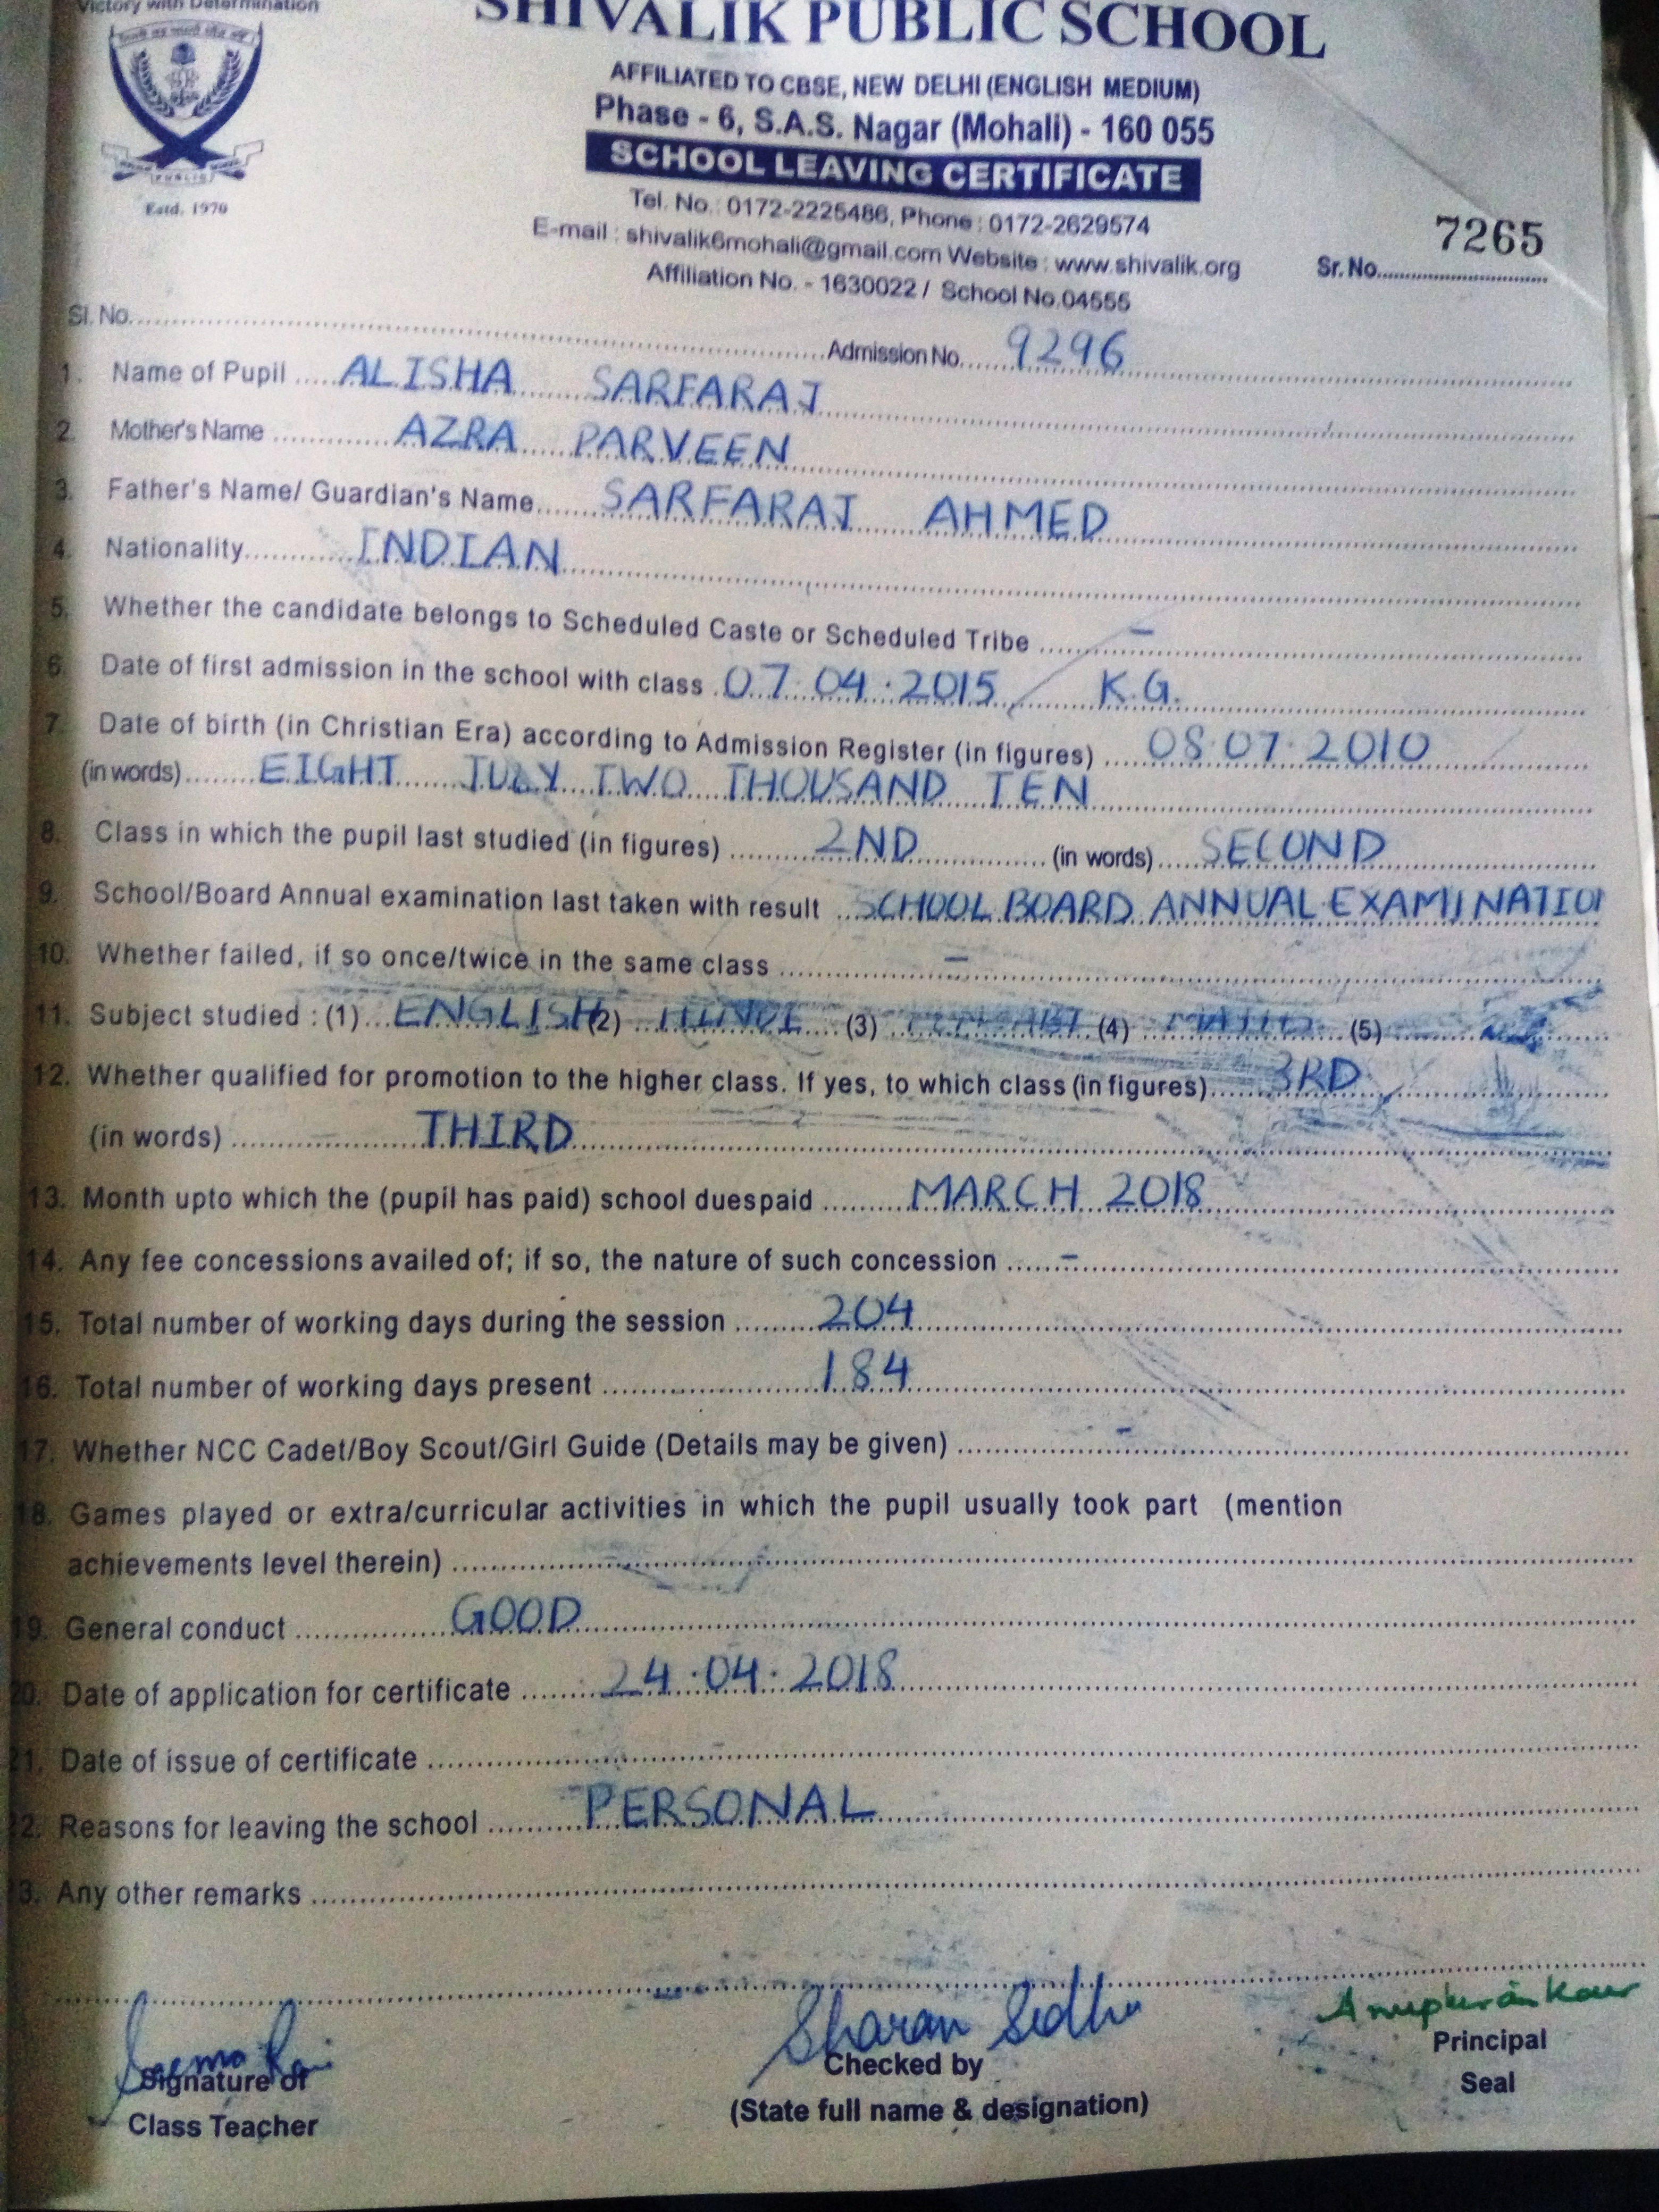 Victory with Determination
SHIVALIK PUBLIC SCHOOL
AFFILIATED TO CBSE, NEW DELHI (ENGLISH MEDIUM)
Phase - 6, S.A.S. Nagar (Mohali) - 160 055
SCHOOL LEAVING CERTIFICATE
PUBLIC
Estd. 1970
Tel. No.: 0172-2225486, Phone : 0172-2629574
E-mail : shivalik6mohali@gmail.com Website : www.shivalik.org
Affiliation No. - 1630022 / School No.04555
Sr. No. 7265
Sl. No. Admission No. 9296
1. Name of Pupil ALISHA SARFARAJ
2. Mother's Name AZRA PARVEEN
3. Father's Name/ Guardian's Name SARFARAJ AHMED
4. Nationality INDIAN
5. Whether the candidate belongs to Scheduled Caste or Scheduled Tribe –
6. Date of first admission in the school with class 07.04.2015 / K.G.
7. Date of birth (in Christian Era) according to Admission Register (in figures) 08.07.2010
(in words) EIGHT JULY TWO THOUSAND TEN
8. Class in which the pupil last studied (in figures) 2ND (in words) SECOND
9. School/Board Annual examination last taken with result SCHOOL BOARD ANNUAL EXAMINATION
10. Whether failed, if so once/twice in the same class –
11. Subject studied : (1) ENGLISH (2) (3) (4) (5)
12. Whether qualified for promotion to the higher class. If yes, to which class (in figures) 3RD
(in words) THIRD
13. Month upto which the (pupil has paid) school duespaid MARCH 2018
14. Any fee concessions availed of; if so, the nature of such concession –
15. Total number of working days during the session 204
16. Total number of working days present 184
17. Whether NCC Cadet/Boy Scout/Girl Guide (Details may be given) –
18. Games played or extra/curricular activities in which the pupil usually took part (mention
achievements level therein)
19. General conduct GOOD
20. Date of application for certificate 24.04.2018
21. Date of issue of certificate
22. Reasons for leaving the school PERSONAL
23. Any other remarks
Sharan Sidhu
Signature of
Class Teacher
Checked by
(State full name & designation)
Principal
Seal